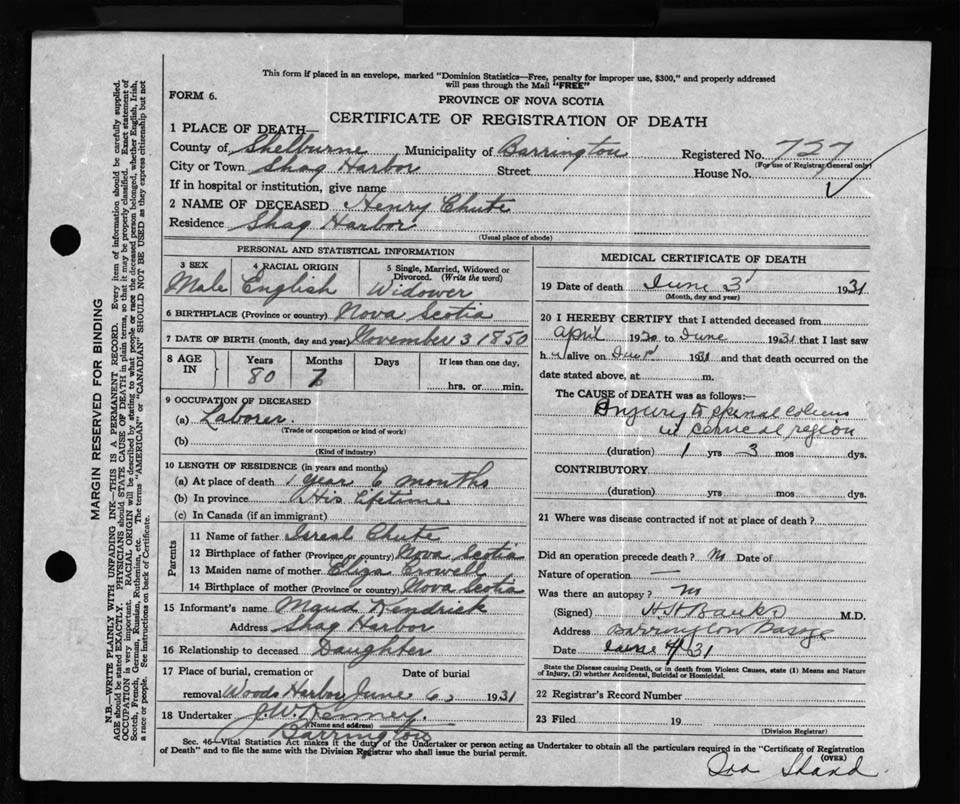 This form if placed in an envelope, marked "Dominion Statistics—Free, penalty for improper use, $300," and properly addressed
will pass through the Mail "FREE"
FORM 6.
PROVINCE OF NOVA SCOTIA
CERTIFICATE OF REGISTRATION OF DEATH
1 PLACE OF DEATH—
County of Shelburne Municipality of Barrington Registered No. 727
(For use of Registrar General only)
City or Town Shag Harbor Street House No.
If in hospital or institution, give name
2 NAME OF DECEASED Henry Chute
Residence Shag Harbor
(Usual place of abode)
PERSONAL AND STATISTICAL INFORMATION
3 SEX 4 RACIAL ORIGIN 5 Single, Married, Widowed or
Divorced. (Write the word)
Male English Widower
6 BIRTHPLACE (Province or country) Nova Scotia
7 DATE OF BIRTH (month, day and year) November 3 1850
8 AGE IN Years Months Days If less than one day,
80 7 hrs. or min.
9 OCCUPATION OF DECEASED
(a) Laborer
(Trade or occupation or kind of work)
(b)
(Kind of industry)
10 LENGTH OF RESIDENCE (in years and months)
(a) At place of death 1 year 6 months
(b) In province His Lifetime
(c) In Canada (if an immigrant)
Parents
11 Name of father Isreal Chute
12 Birthplace of father (Province or country) Nova Scotia
13 Maiden name of mother Eliza Crowell
14 Birthplace of mother (Province or country) Nova Scotia
15 Informant's name Maud Kendrick
Address Shag Harbor
16 Relationship to deceased Daughter
17 Place of burial, cremation or Date of burial
removal Woods Harbor June 6, 1931
18 Undertaker J. W. Kenney
(Name and address)
Barrington
MEDICAL CERTIFICATE OF DEATH
19 Date of death June 3 1931
(Month, day and year)
20 I HEREBY CERTIFY that I attended deceased from
April 1930 to June 1931 that I last saw
h alive on 1931 and that death occurred on the
date stated above, at m.
The CAUSE OF DEATH was as follows:—
Injury to spinal column
in cervical region
(duration) 1 yrs 3 mos dys.
CONTRIBUTORY
(duration) yrs mos dys.
21 Where was disease contracted if not at place of death?
Did an operation precede death? No Date of
Nature of operation —
Was there an autopsy? No
(Signed) H H Banks M.D.
Address Barrington Passage
Date June 31
State the Disease causing Death, or in death from Violent Causes, state (1) Means and Nature
of Injury, (2) whether Accidental, Suicidal or Homicidal.
22 Registrar's Record Number
23 Filed 19
(Division Registrar)
Sec. 46—Vital Statistics Act makes it the duty of the Undertaker or person acting as Undertaker to obtain all the particulars required in the "Certificate of Registration
of Death" and to file the same with the Division Registrar who shall issue the burial permit.
(OVER)
Ina Shand
MARGIN RESERVED FOR BINDING
N.B.—WRITE PLAINLY WITH UNFADING INK—THIS IS A PERMANENT RECORD. Every item of information should be carefully supplied.
AGE should be stated EXACTLY. PHYSICIANS should STATE CAUSE OF DEATH in plain terms, so that it may be properly classified. Exact statement of
OCCUPATION is very important. RACIAL ORIGIN will be described by stating to what people or race the deceased person belonged, whether English, Irish,
Scotch, French, German, Russian, Ruthenian, etc. The terms "AMERICAN" or "CANADIAN" SHOULD NOT BE USED as they express citizenship but not
a race or people. See instructions on back of Certificate.